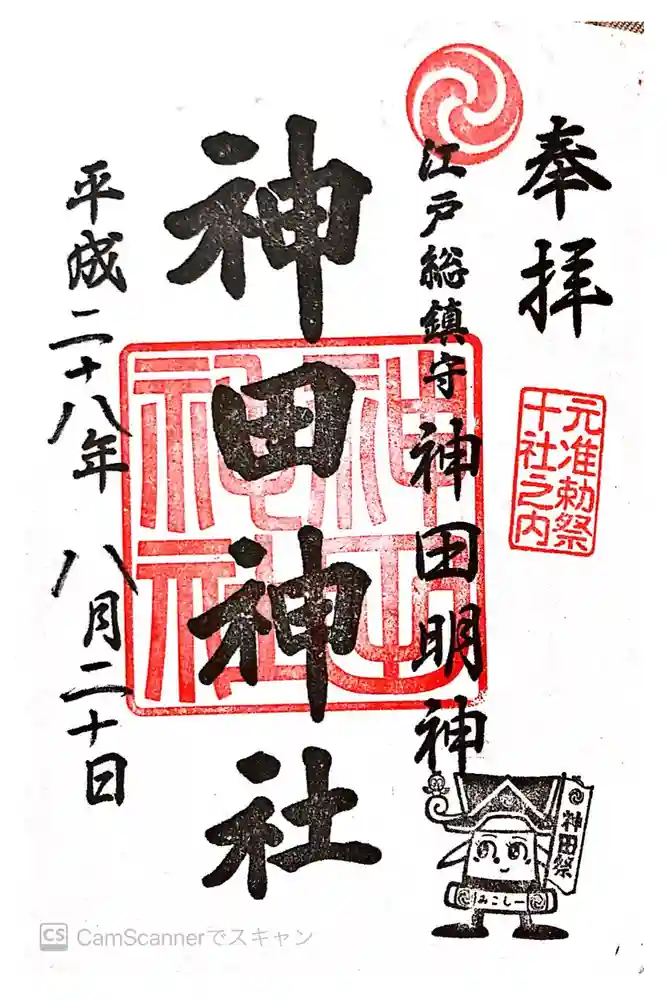 奉拝
元准勅祭
十社之内
江戸総鎮守 神田明神
神田神社
神田神社
平成二十八年 八月二十日
神田祭
みこしー
CamScannerでスキャン